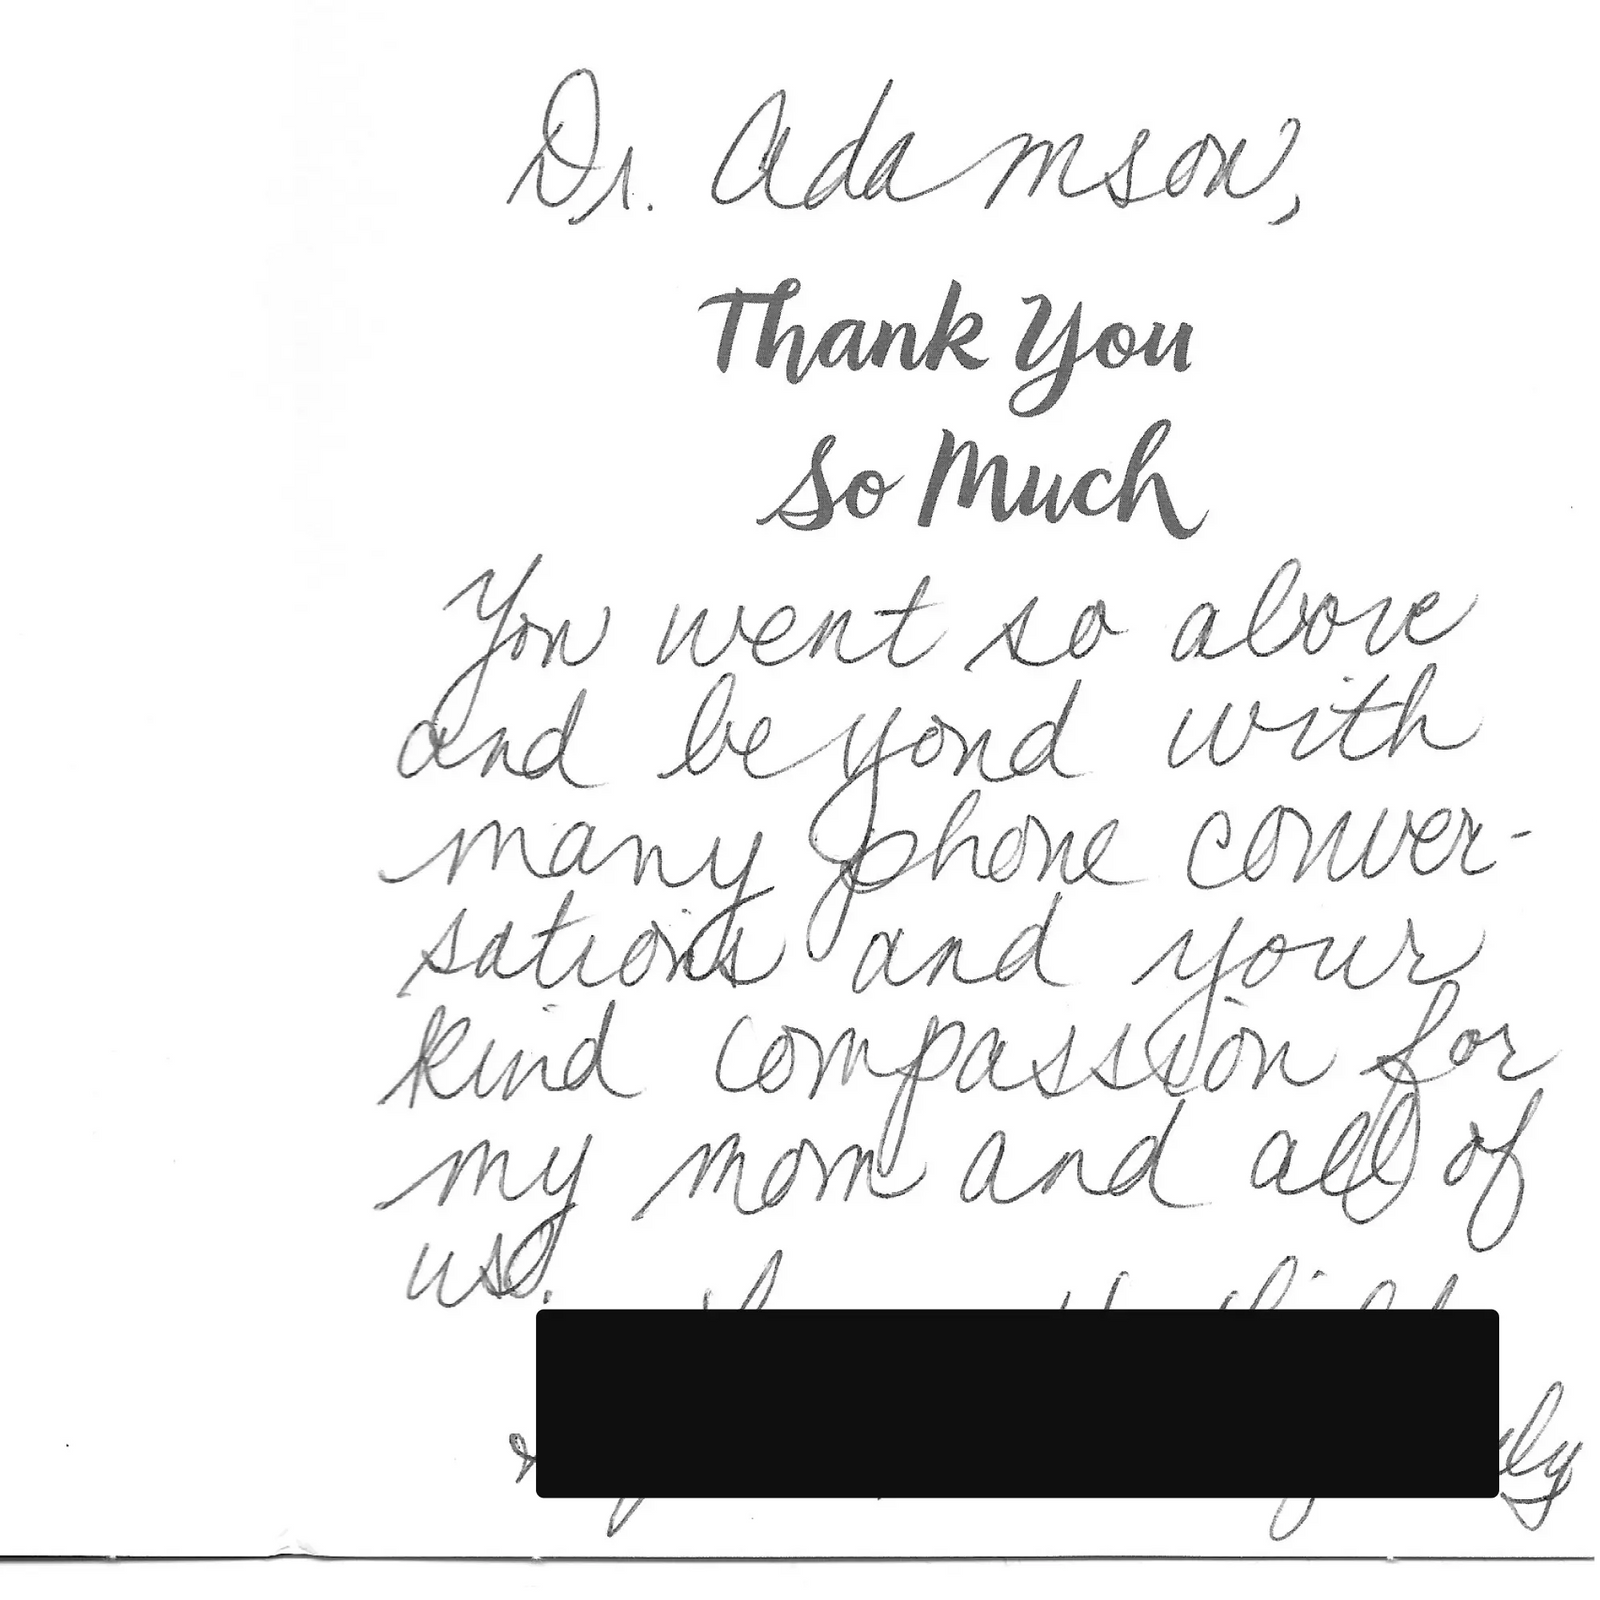 Dr. Adamson,
Thank You
So Much
You went so above
and beyond with
many phone conver-
sations and your
kind compassion for
my mom and all of
us.